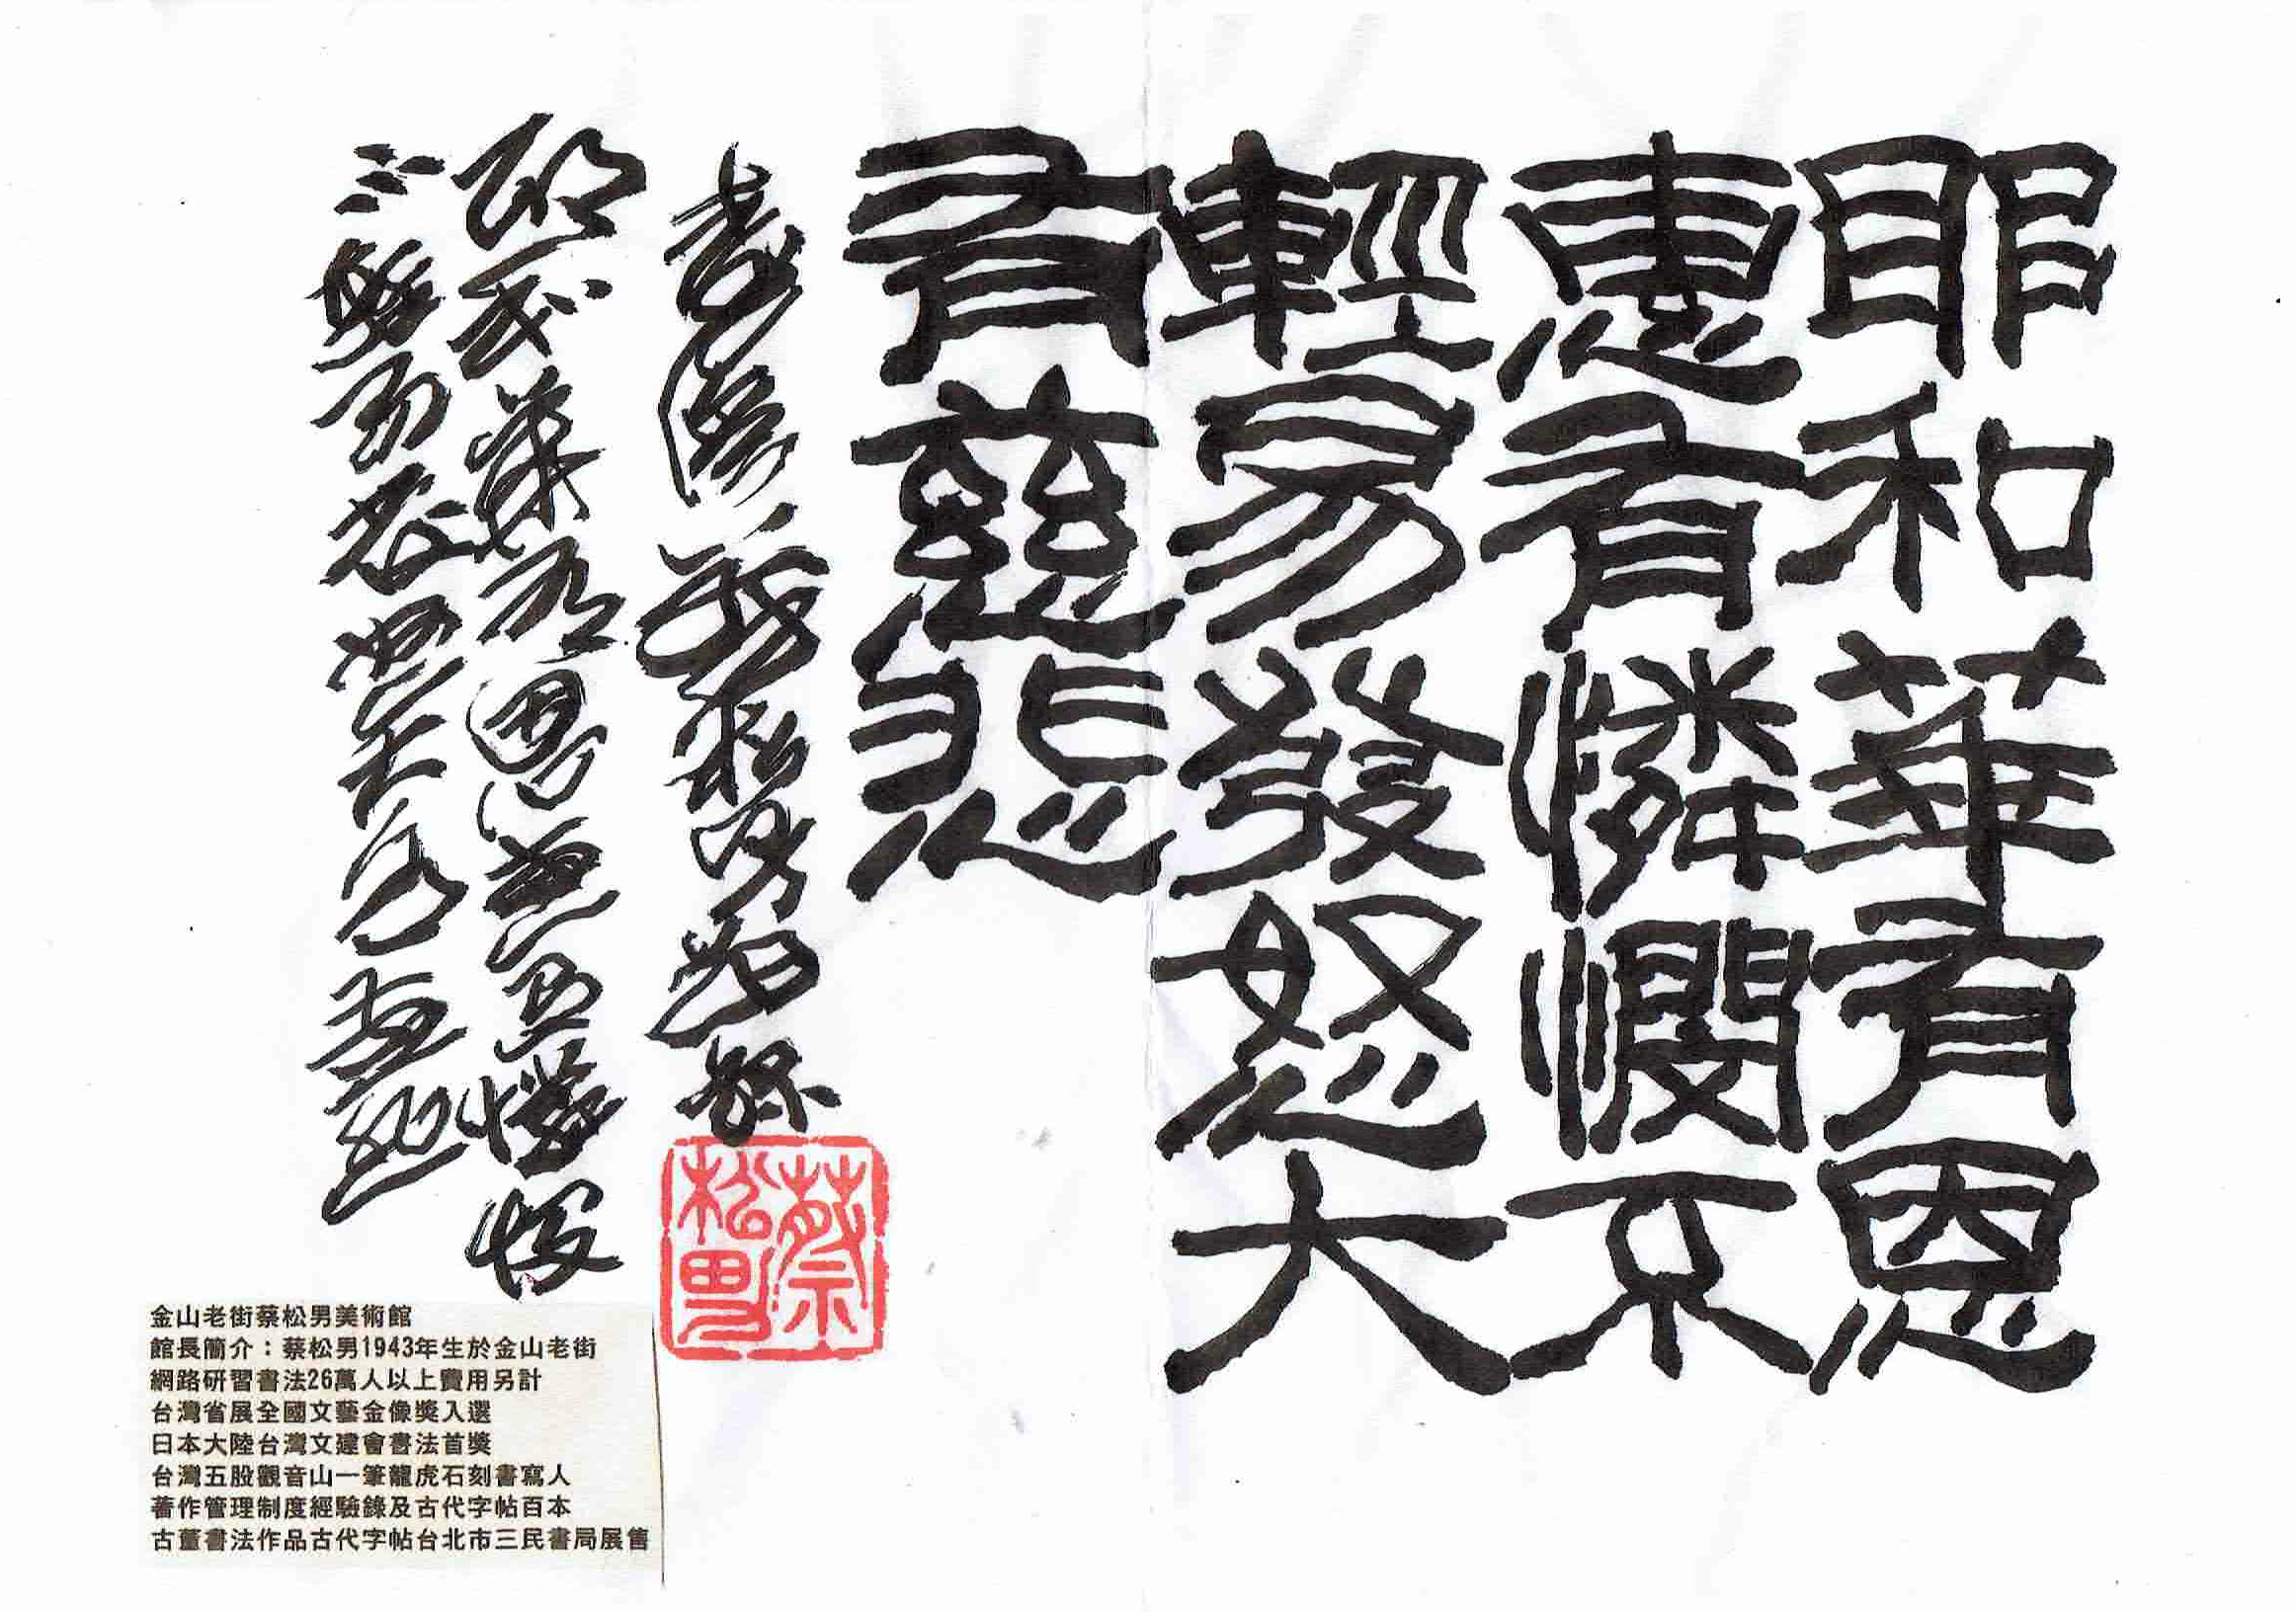 耶和華有恩
惠有憐憫不
輕易發怒大
有慈悲
書法家蔡松男恭錄
耶和華有恩惠有憐憫
不輕易發怒大有慈悲
蔡松男
金山老街蔡松男美術館
館長簡介：蔡松男1943年生於金山老街
網路研習書法26萬人以上費用另計
台灣省展全國文藝金像獎入選
日本大陸台灣文建會書法首獎
台灣五股觀音山一筆龍虎石刻書寫人
著作管理制度經驗錄及古代字帖百本
古董書法作品古代字帖台北市三民書局展售